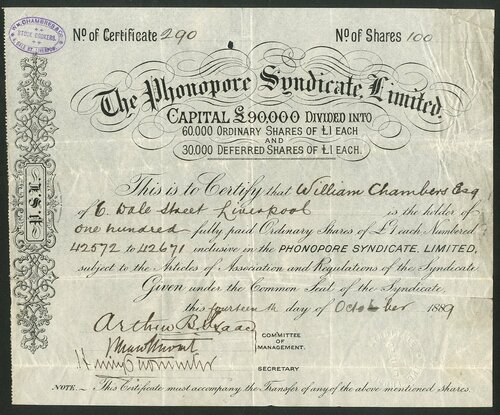 Wm. CHAMBERS & Co.
STOCK BROKERS.
6 DALE ST. LIVERPOOL
No of Certificate 290
No of Shares 100
The Phonopore Syndicate, Limited.
CAPITAL £90,000 DIVIDED INTO
60,000 ORDINARY SHARES OF £1 EACH
AND
30,000 DEFERRED SHARES OF £1 EACH.
This is to Certify that William Chambers Esq
of 6, Dale Street Liverpool is the holder of
one hundred fully paid Ordinary Shares of £1 each Numbered
42572 to 42671 inclusive in the PHONOPORE SYNDICATE, LIMITED,
subject to the Articles of Association and Regulations of the Syndicate
Given under the Common Seal of the Syndicate,
this fourteenth day of October 1889
Arthur B.
COMMITTEE
OF
MANAGEMENT.
SECRETARY
NOTE. – This Certificate must accompany the Transfer of any of the above mentioned Shares.